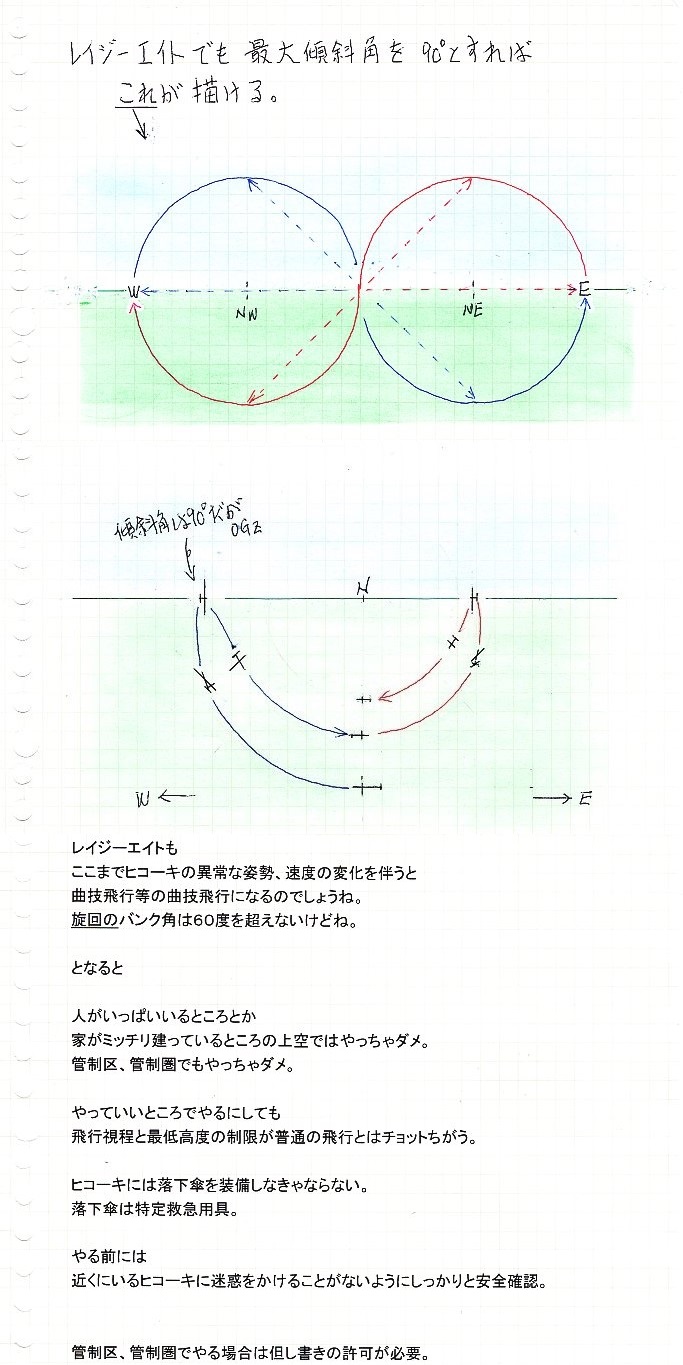 レイジーエイトでも 最大傾斜角を 90°とすれば
これが 描ける。
W
NW
NE
E
傾斜角は90°だが
0Gs
N
W
E
レイジーエイトも
ここまでヒコーキの異常な姿勢、速度の変化を伴うと
曲技飛行等の曲技飛行になるのでしょうね。
旋回のバンク角は60度を超えないけどね。
となると
人がいっぱいいるところとか
家がミッチリ建っているところの上空ではやっちゃダメ。
管制区、管制圏でもやっちゃダメ。
やっていいところでやるにしても
飛行視程と最低高度の制限が普通の飛行とはチョットちがう。
ヒコーキには落下傘を装備しなきゃならない。
落下傘は特定救急用具。
やる前には
近くにいるヒコーキに迷惑をかけることがないようにしっかりと安全確認。
管制区、管制圏でやる場合は但し書きの許可が必要。